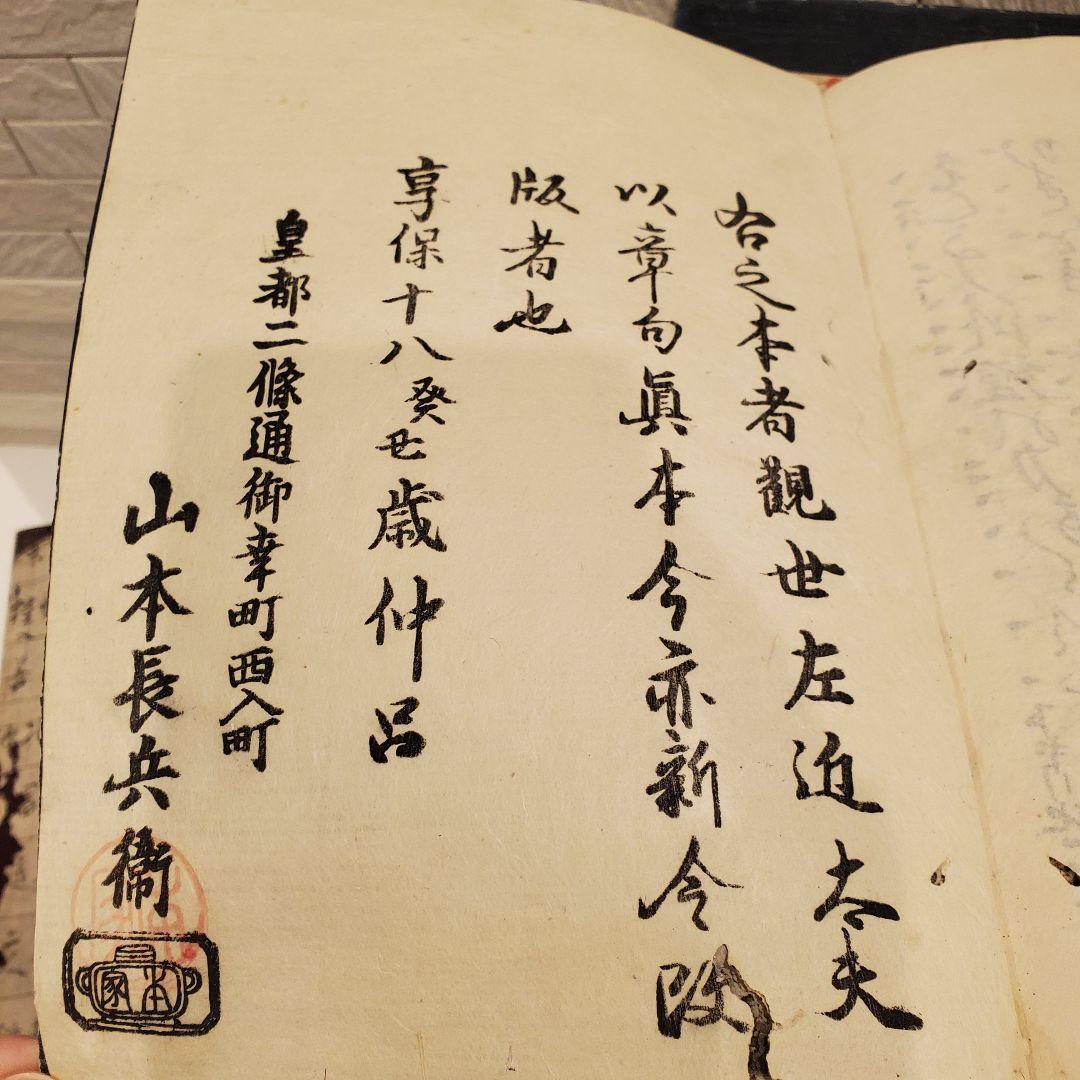 右之本者觀世左近太夫
以章句眞本今亦新令改
版者也
享保十八癸丑歳仲呂
皇都二條通御幸町西入町
山本長兵衞
本家